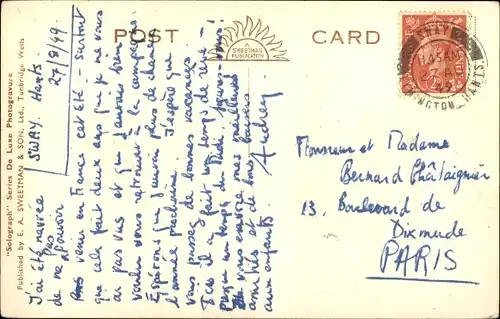 POST CARD
A
SWEETMAN
PUBLICATION
"Solograph" Series De Luxe Photogravure
Published by E. A. SWEETMAN & SON, Ltd., Tunbridge Wells
SWAY. Hants
27/8/49
J'ai été navrée
de ne pas pouvoir
venir en France cet été – surtout
que cela fait deux ans que je ne vous
ai pas vus et que j'aurais bien
voulu vous retrouver à la campagne
Espérons que j'aurai plus de chance
l'année prochaine. J'espère que
vous passez de bonnes vacances
Ici il a fait un temps de rêve –
presque un temps du Midi, figurez-vous!
Je vous envoie mes meilleures
amitiés et de bons baisers
aux enfants Audrey
Monsieur et Madame
Bernard Châtaignier
13, Boulevard de
Dixmude
PARIS
SWAY
LYMINGTON, HANTS.